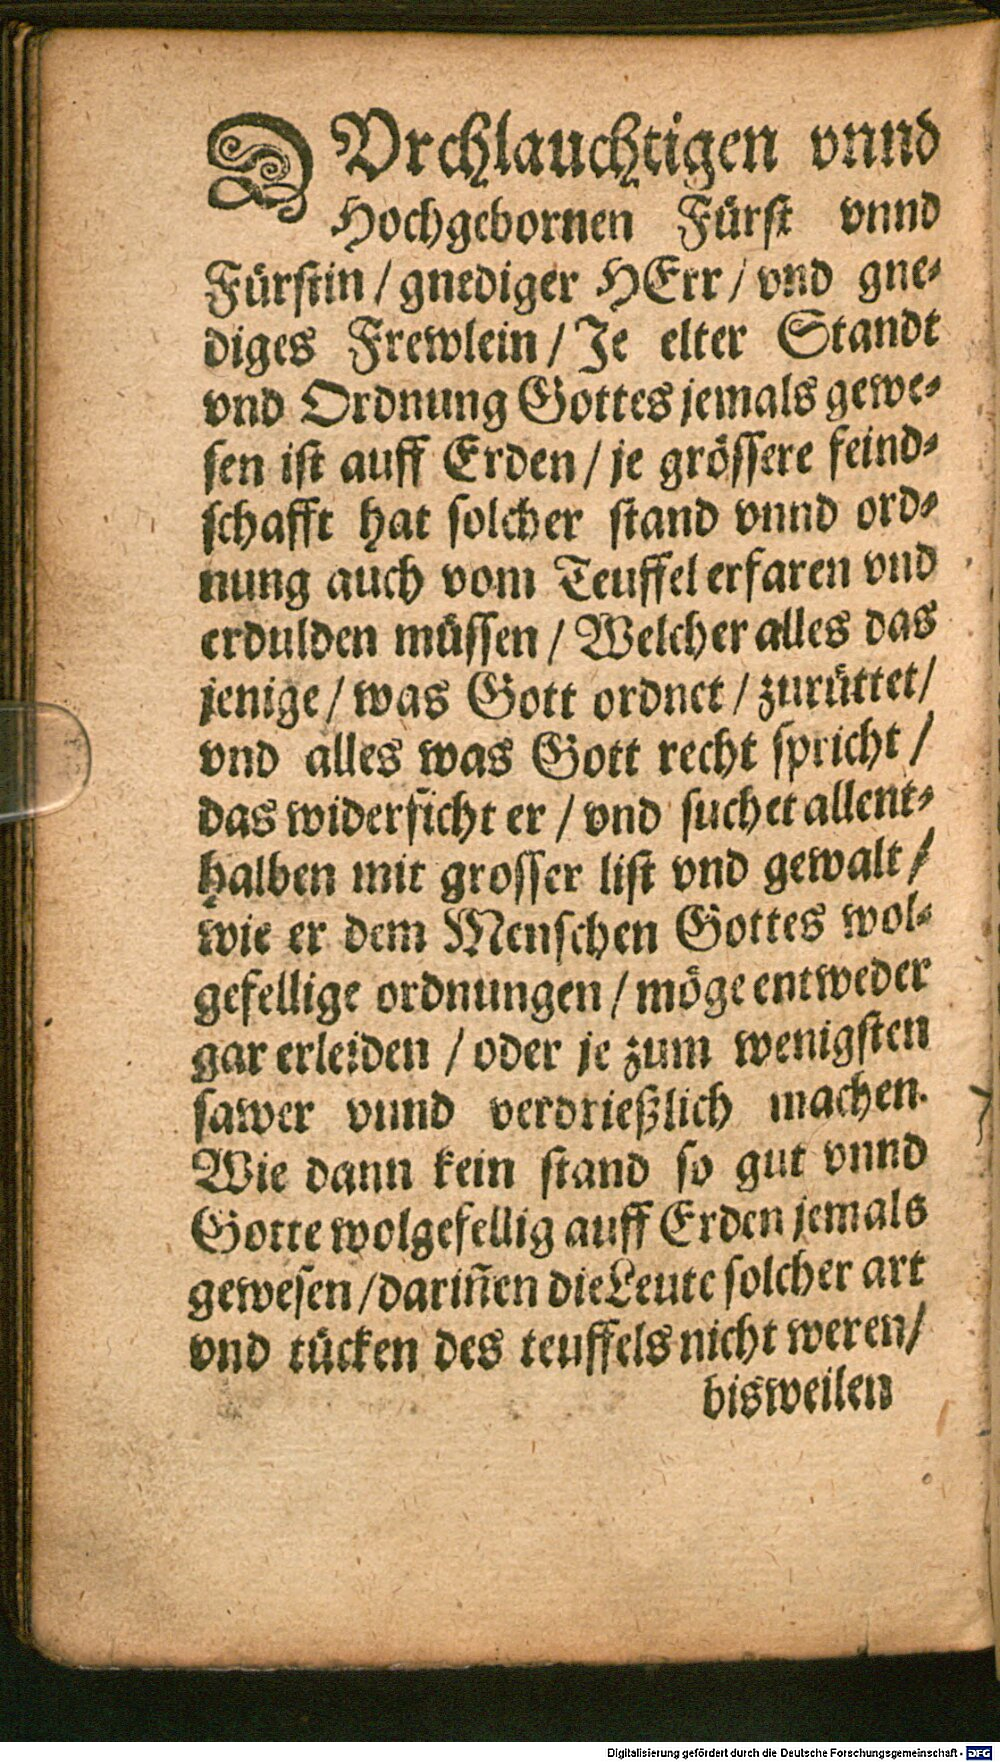 DVrchlauchtigen vnnd
Hochgebornen Fürst vnnd
Fürstin / gnediger HErr / vnd gne⸗
diges Frewlein / Je elter Standt
vnd Ordnung Gottes jemals gewe⸗
sen ist auff Erden / je grössere feind⸗
schafft hat solcher stand vnnd ord⸗
nung auch vom Teuffel erfaren vnd
erdulden müssen / Welcher alles das
jenige / was Gott ordnet / zurüttet /
vnd alles was Gott recht spricht /
das widerficht er / vnd suchet allent⸗
halben mit grosser list vnd gewalt /
wie er dem Menschen Gottes wol⸗
gefellige ordnungen / möge entweder
gar erleiden / oder je zum wenigsten
sawer vnnd verdrießlich machen.
Wie dann kein stand so gut vnnd
Gotte wolgefellig auff Erden jemals
gewesen / dariñen die Leute solcher art
vnd tücken des teuffels nicht weren /
bisweilen
Digitalisierung gefördert durch die Deutsche Forschungsgemeinschaft - DFG